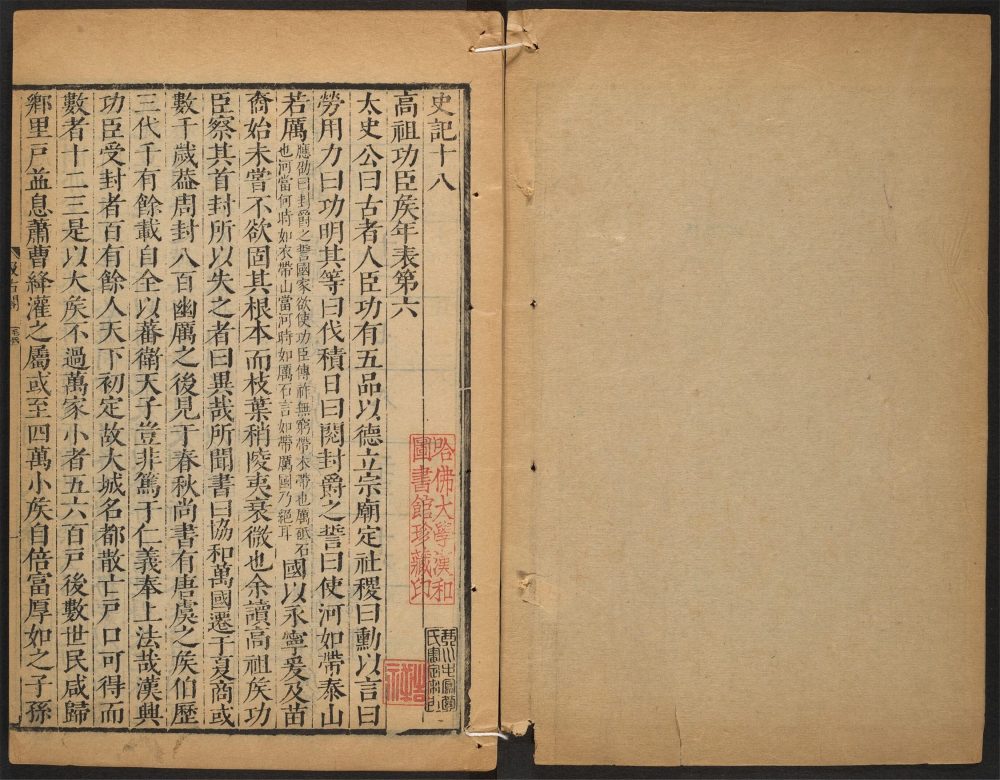 史記十八
高祖功臣矦年表第六
太史公曰古者人臣功有五品以德立宗廟定社稷曰勳以言曰
勞用力曰功明其等曰伐積日曰閱封爵之誓曰使河如帶泰山
若厲應劭曰封爵之誓國家欲使功臣傳祚無窮帶衣帶也厲砥石也河當何時如衣帶山當何時如厲石言如帶厲國乃絕耳國以永寧爰及苗
裔始未嘗不欲固其根本而枝葉稍陵夷衰微也余讀高祖矦功
臣察其首封所以失之者曰異哉所聞書曰協和萬國遷于夏商或
數千歲葢周封八百幽厲之後見于春秋尚書有唐虞之矦伯歷
三代千有餘載自全以蕃衛天子豈非篤于仁義奉上法哉漢興
功臣受封者百有餘人天下初定故大城名都散亡戸口可得而
數者十二三是以大矦不過萬家小者五六百戸後數世民咸歸
鄉里戸益息蕭曹絳灌之屬或至四萬小矦自倍富厚如之子孫
哈佛大學漢和
圖書館珍藏印